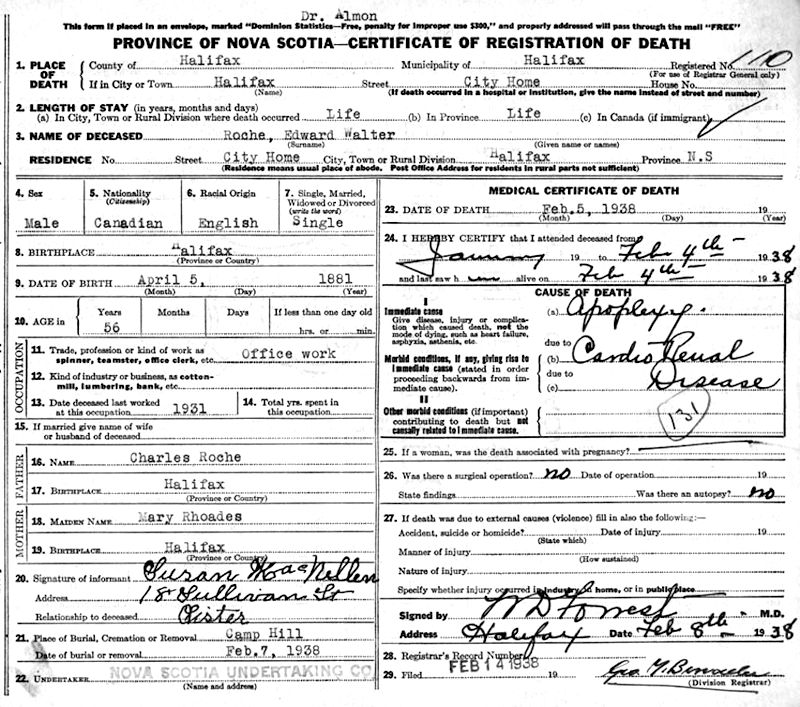 Dr. Almon
This form if placed in an envelope, marked "Dominion Statistics—Free, penalty for improper use $300," and properly addressed will pass through the mail "FREE"
PROVINCE OF NOVA SCOTIA—CERTIFICATE OF REGISTRATION OF DEATH
1. PLACE OF DEATH
County of Halifax Municipality of Halifax Registered No. 110
(For use of Registrar General only)
If in City or Town Halifax Street City Home House No.
(Name) (If death occurred in a hospital or institution, give the name instead of street and number)
2. LENGTH OF STAY (in years, months and days)
(a) In City, Town or Rural Division where death occurred Life (b) In Province Life (c) In Canada (if immigrant)
3. NAME OF DECEASED Roche, Edward Walter
(Surname) (Given name or names)
RESIDENCE No. Street City Home City, Town or Rural Division Halifax Province N.S
(Residence means usual place of abode. Post Office Address for residents in rural parts not sufficient)
4. Sex
Male
5. Nationality
(Citizenship)
Canadian
6. Racial Origin
English
7. Single, Married, Widowed or Divorced
(write the word)
Single
8. BIRTHPLACE Halifax
(Province or Country)
9. DATE OF BIRTH April 5, 1881
(Month) (Day) (Year)
10. AGE in
Years Months Days If less than one day old
56 hrs. or min.
OCCUPATION
11. Trade, profession or kind of work as spinner, teamster, office clerk, etc. Office work
12. Kind of industry or business, as cotton-mill, lumbering, bank, etc.
13. Date deceased last worked at this occupation 1931
14. Total yrs. spent in this occupation
15. If married give name of wife or husband of deceased
FATHER
16. NAME Charles Roche
17. BIRTHPLACE Halifax
(Province or Country)
MOTHER
18. MAIDEN NAME Mary Rhoades
19. BIRTHPLACE Halifax
(Province or Country)
20. Signature of informant Susan
Address Sullivan St
Relationship to deceased Sister
21. Place of Burial, Cremation or Removal Camp Hill
Date of burial or removal Feb.7, 1938
22. UNDERTAKER NOVA SCOTIA UNDERTAKING CO.
(Name and address)
MEDICAL CERTIFICATE OF DEATH
23. DATE OF DEATH Feb.5, 1938 19
(Month) (Day) (Year)
24. I HEREBY CERTIFY that I attended deceased from
January 19 to Feb 4th 1938
and last saw him alive on Feb 4th 1938
CAUSE OF DEATH
I
Immediate cause
Give disease, injury or complication which caused death, not the mode of dying, such as heart failure, asphyxia, asthenia, etc.
(a) Apoplexy.
due to
Morbid conditions, if any, giving rise to immediate cause (stated in order proceeding backwards from immediate cause).
(b) Cardio Renal
due to
(c) Disease
II
Other morbid conditions (if important) contributing to death but not causally related to immediate cause.
131
25. If a woman, was the death associated with pregnancy?
26. Was there a surgical operation? no Date of operation 19
State findings Was there an autopsy? no
27. If death was due to external causes (violence) fill in also the following:—
Accident, suicide or homicide? Date of injury 19
(State which)
Manner of injury
(How sustained)
Nature of injury
Specify whether injury occurred in industry, in home, or in public place
Signed by W D Forrest M.D.
Address Halifax Date Feb 8th 1938
28. Registrar's Record Number
29. Filed FEB 14 1938 19
(Division Registrar)